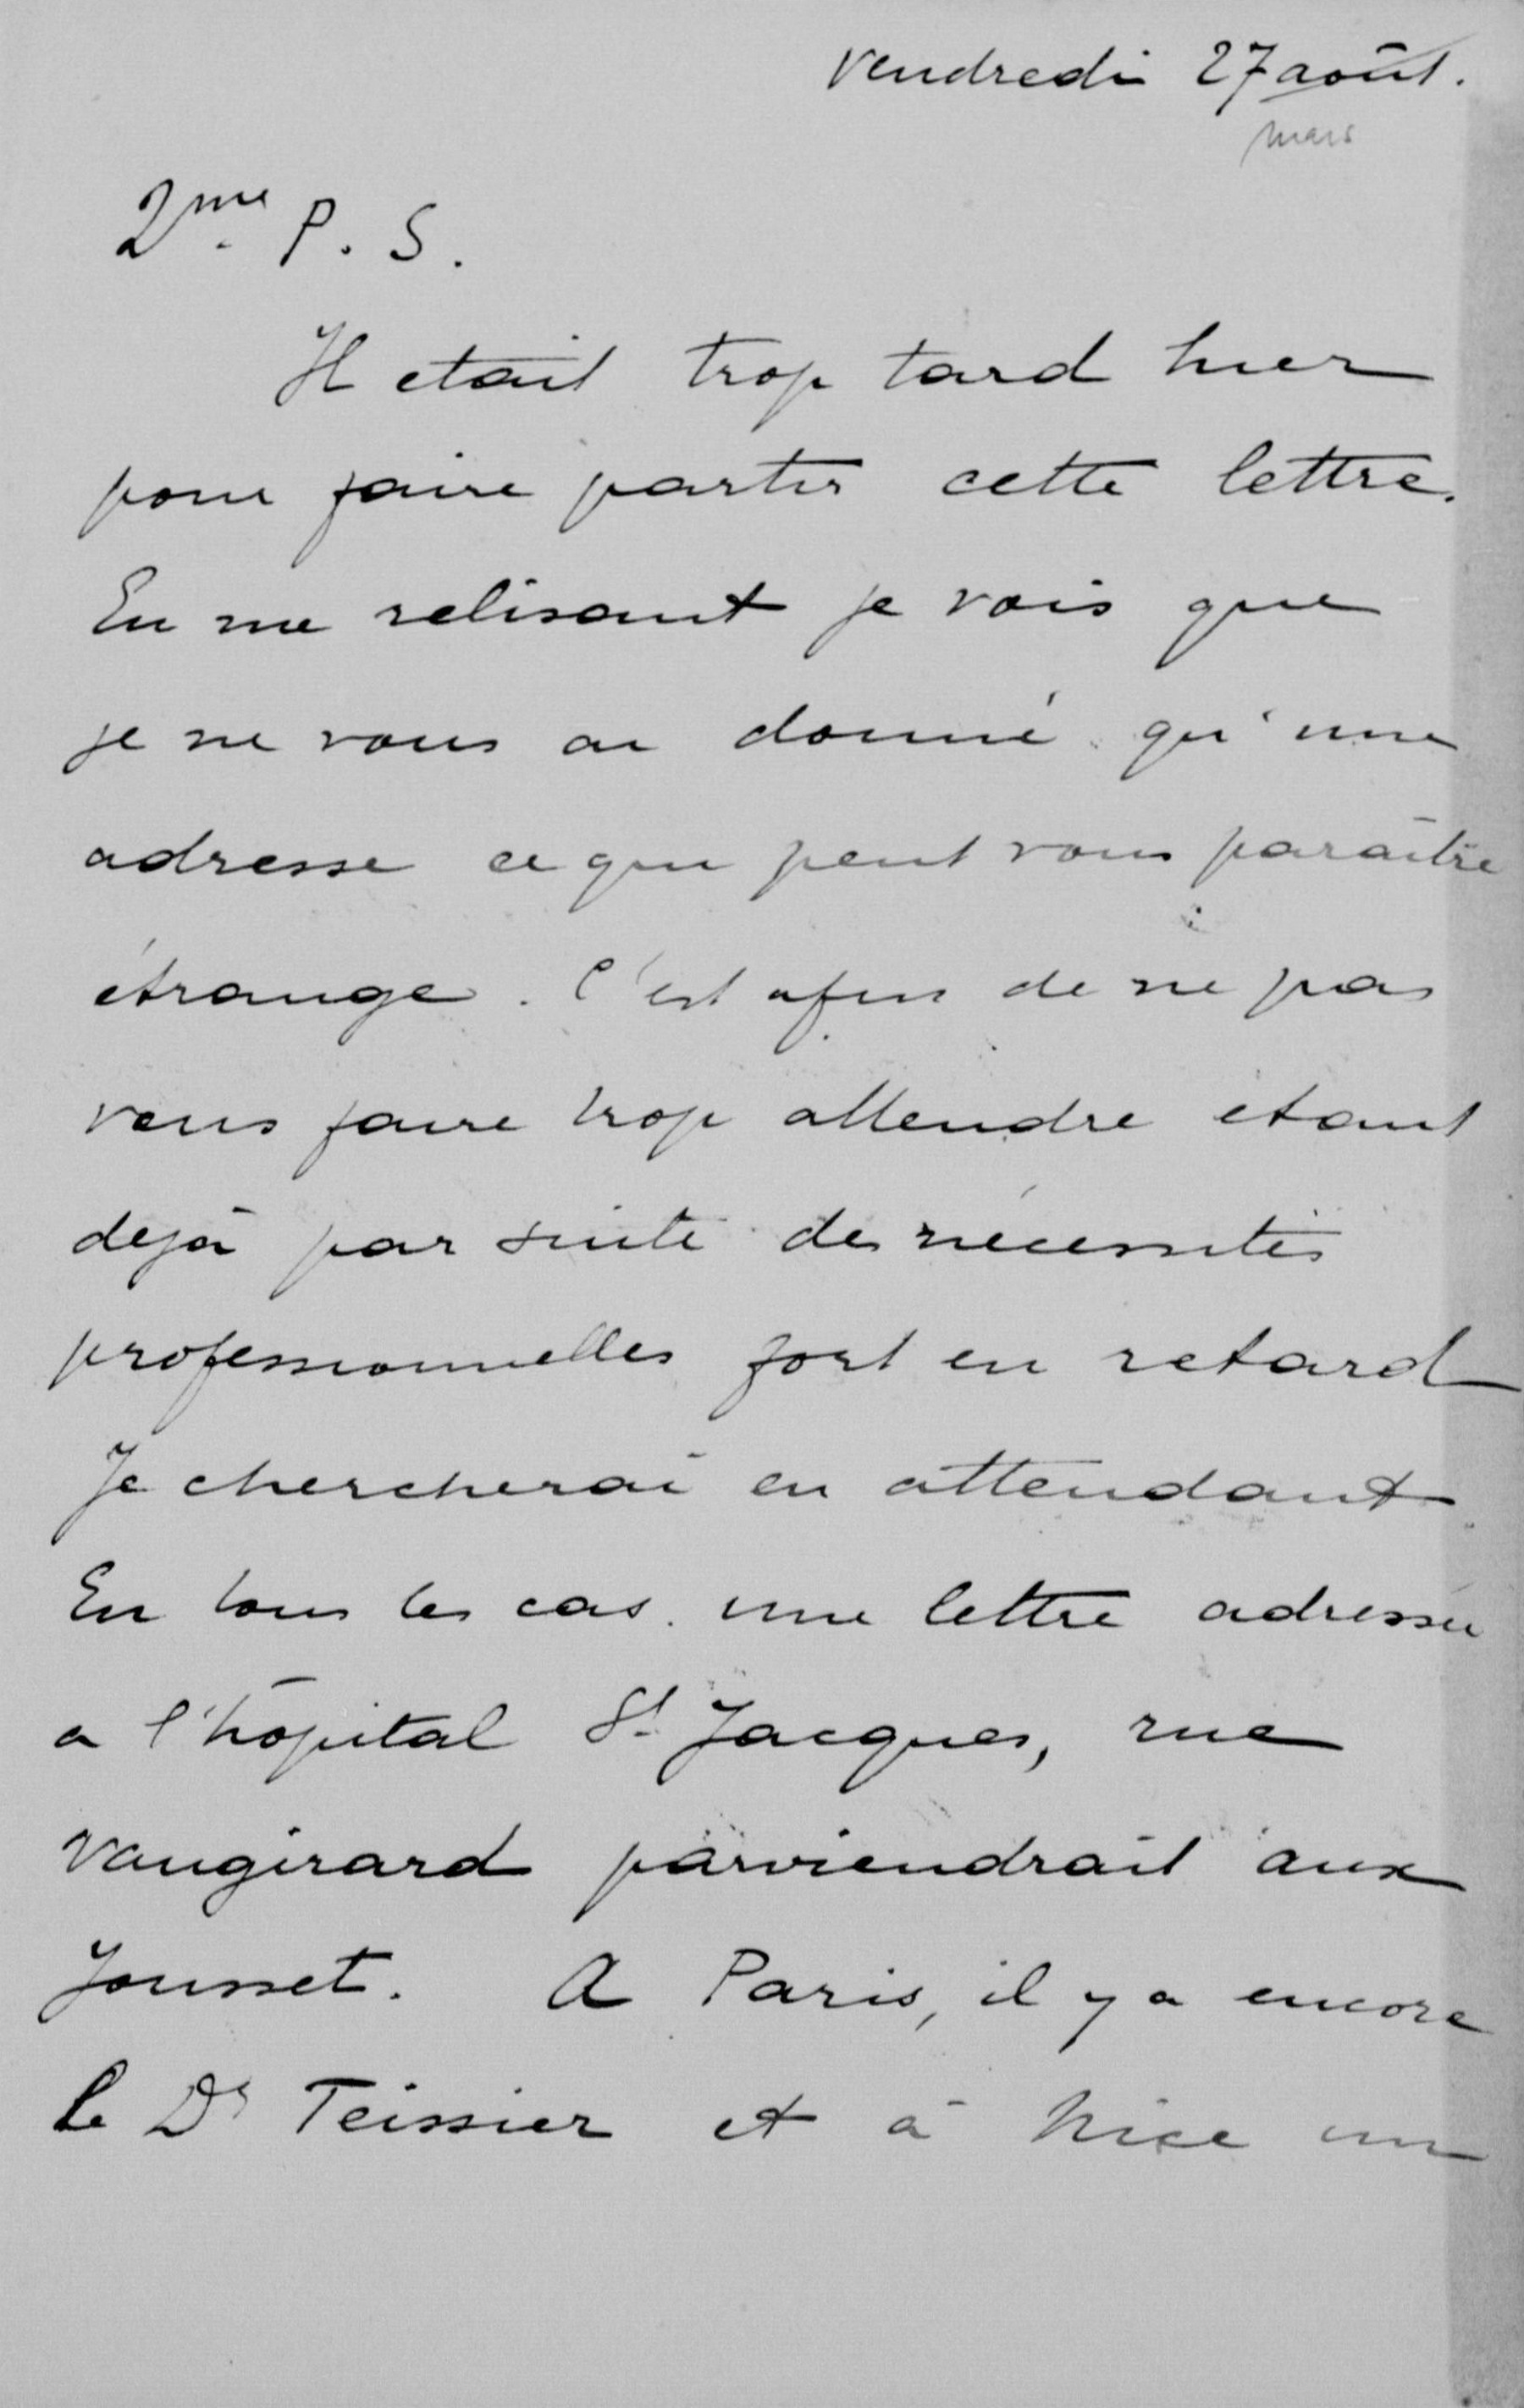 Vendredi 27 août.
mars
2me. P. S.
Il etait trop tard hier
pour faire partir cette lettre.
En me relisant je vois que
je ne vous ai donné qu'une
adresse ce qui peut vous paraître
étrange. C'est afin de ne pas
vous faire trop attendre étant
dejà par suite des nécessités
professionnelles fort en retard
Je chercherai en attendant
En tous les cas. une lettre adressée
a l'hôpital St. Jacques, rue
Vaugirard parviendrait aux
Jousset. A Paris, il y a encore
le Dr Teissier et à Nice un